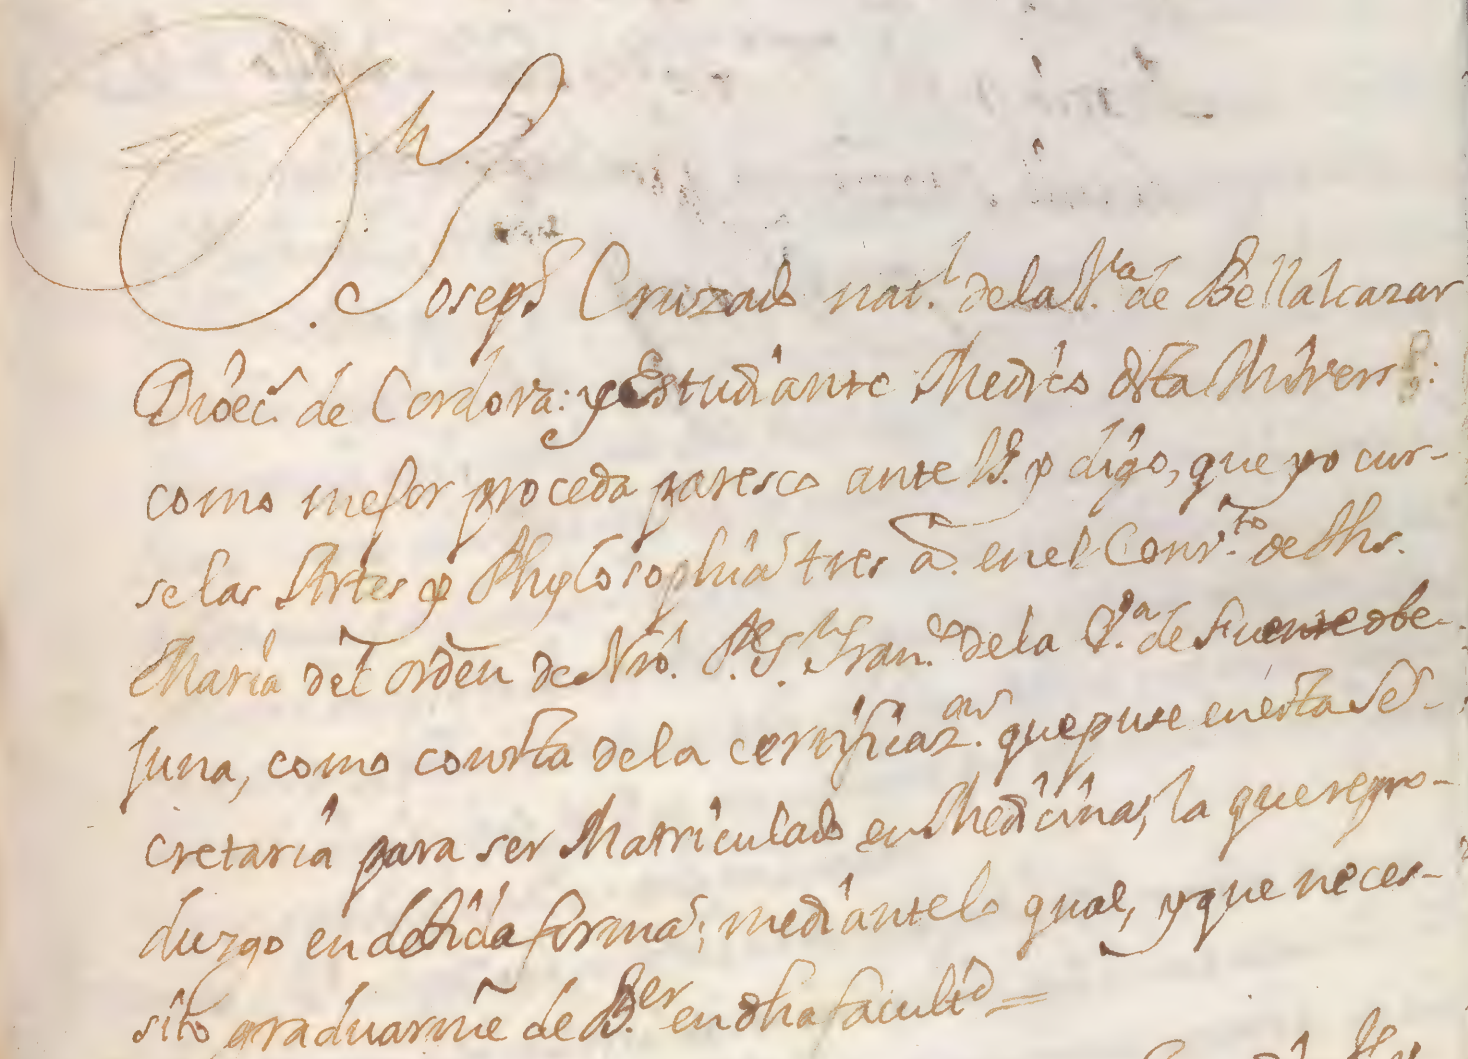 Joseph Cruzado nat.l de la V.a de Bellalcazar
Dioec. de Cordova: y Estudiante Medico dsta Univers.d:
como mejor proceda paresco ante V.S. y digo, que yo cur-
se las Artes y Phylosophia tres a. en el Conv.to de Jhs.
Maria del orden de Nro. P.e S.n Fran.co de la V.a de Fuente obe-
juna, como consta de la certificaz.on que puse en esta Se-
cretaria para ser Matriculado en Medicina; la que repro-
duzgo en debida forma; mediante lo qual, y que neces-
sito graduarme de B.er en dha facultd =